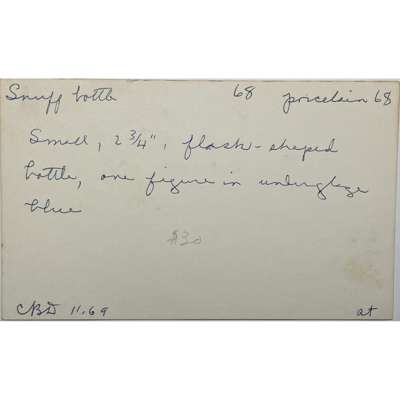 Snuff bottle 68 porcelain 68
Small, 2 3/4", flask-shaped
bottle, one figure in underglaze
blue
$30
CBD 11.69 at